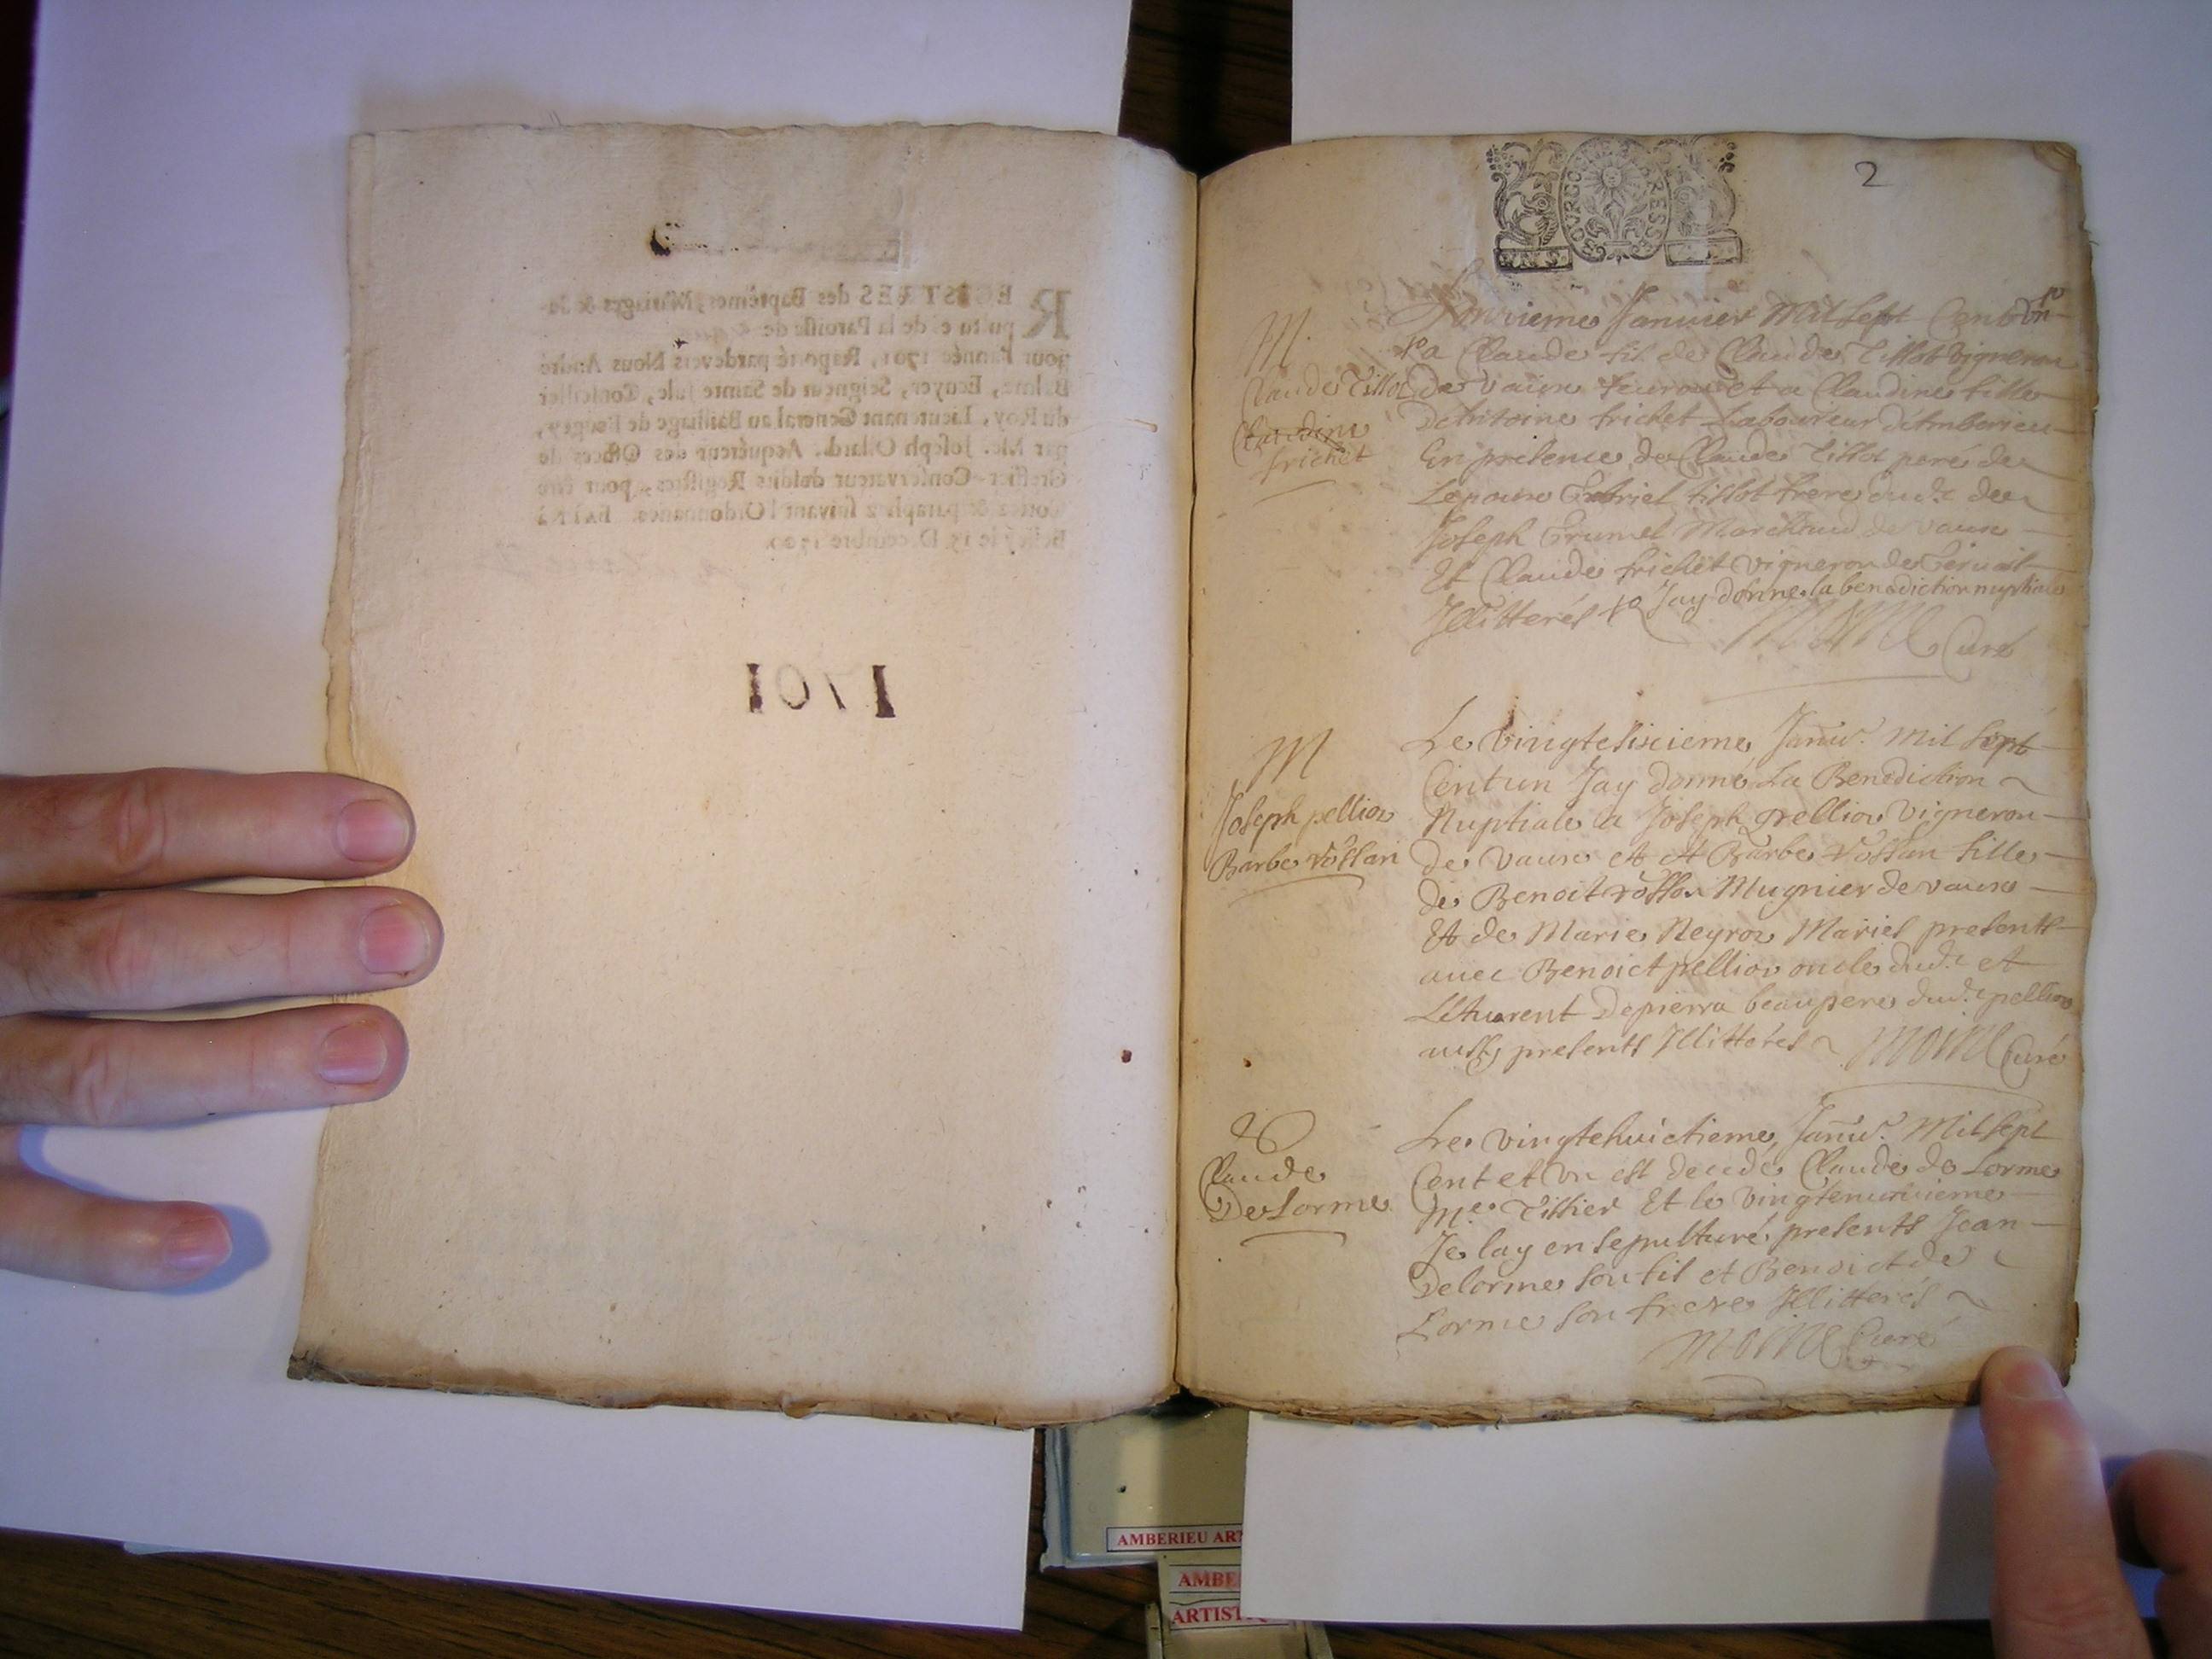 REGISTRES des Baptêmes, Mariages & de-
pultu e de la Paroisse de
pour l'année 1701, Raporté pardevers Nous André
Balme, Ecuyer, Seigneur de Sainte Jule, Conseiller
du Roy, Lieutenant General au Bailliage de Beugey,
par Me. Joseph Oilard, Acquéreur des Offices de
Greffier-Conservateur desdits Registres, pour être
Cottez & paraphez suivant l'Ordonnance. FAIT à
Belley le 15 Decembre 1700.
1701
2
BOURGOG BRESSE
Janvier Mil sept Cent Un
M.
Claude fil de Claude Tissot vigneron
Claude Tissot
de vaux et a Claudine fille
Claudine
D'Antoine frichet Laboureur d'Amberieu
frichet
En presence de Claude Tissot pere de
Lepoux Gabriel tissot frere dud.t de
Joseph Grumel Marchand de vaux
Et Claude frichet vigneron de
Illitterés Jay donne la benediction nuptiale
Curé
Le vingtesixieme Janv.r mil sept
M
Cent un Jay donné La Benediction
Joseph pelliou
Nuptiale a Joseph pelliou vigneron
Barbe rossan
de vaux et A Barbe rossan fille
de Benoit rossan Mugnier de vaux
Et de Marie Neyroz Mariés presents
avec Benoict pelliou oncle dud.t et
Laurent Depierra beaupere dud.t pelliou
aussy presents Illitterés Moine Curé
Le vingtehuictieme Janv.r Mil sept
Cent et un est decedé Claude de Lorme
Claude
De Lorme
M.e Tissier Et le vingteneuvieme
Je lay ensepulturé presents Jean
Delorme son fil et Benoict de
Lorme son frere Illitterés
Moine Curé
AMBERIEU AR
AMBE
ARTIST